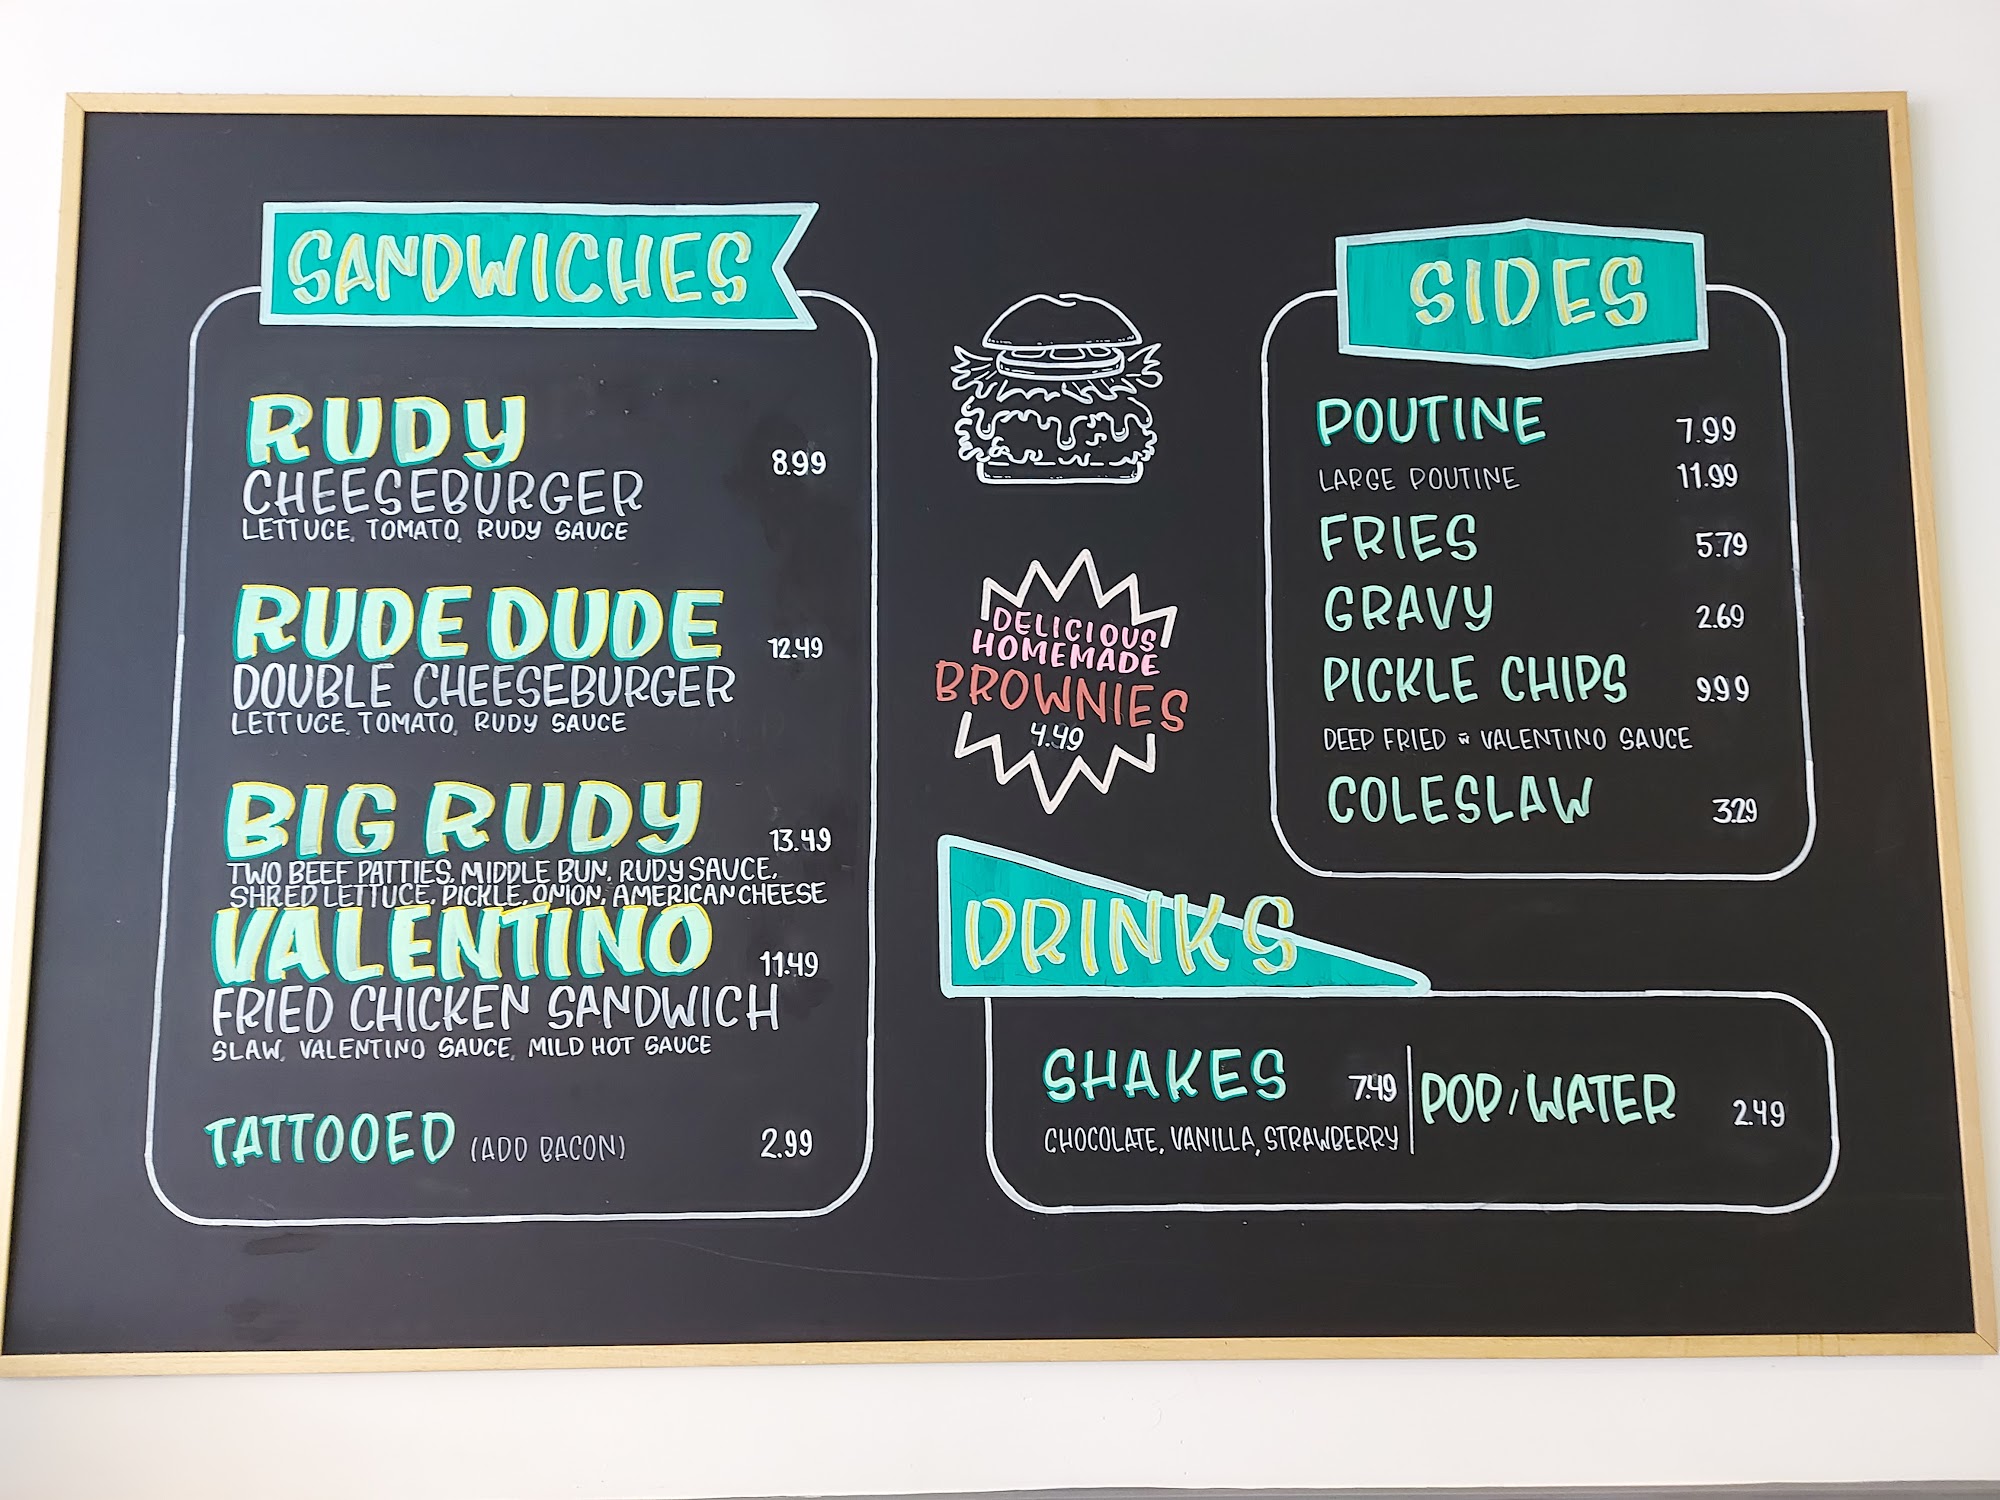 SANDWICHES
RUDY 8.99
CHEESEBURGER
LETTUCE, TOMATO, RUDY SAUCE
RUDE DUDE 12.49
DOUBLE CHEESEBURGER
LETTUCE, TOMATO, RUDY SAUCE
BIG RUDY 13.49
TWO BEEF PATTIES, MIDDLE BUN, RUDY SAUCE,
SHRED LETTUCE, PICKLE, ONION, AMERICAN CHEESE
VALENTINO 11.49
FRIED CHICKEN SANDWICH
SLAW, VALENTINO SAUCE, MILD HOT SAUCE
TATTOOED (ADD BACON) 2.99
DELICIOUS
HOMEMADE
BROWNIES
4.49
SIDES
POUTINE 7.99
LARGE POUTINE 11.99
FRIES 5.79
GRAVY 2.69
PICKLE CHIPS 9.99
DEEP FRIED w VALENTINO SAUCE
COLESLAW 3.29
DRINKS
SHAKES 7.49
CHOCOLATE, VANILLA, STRAWBERRY
POP/WATER 2.49